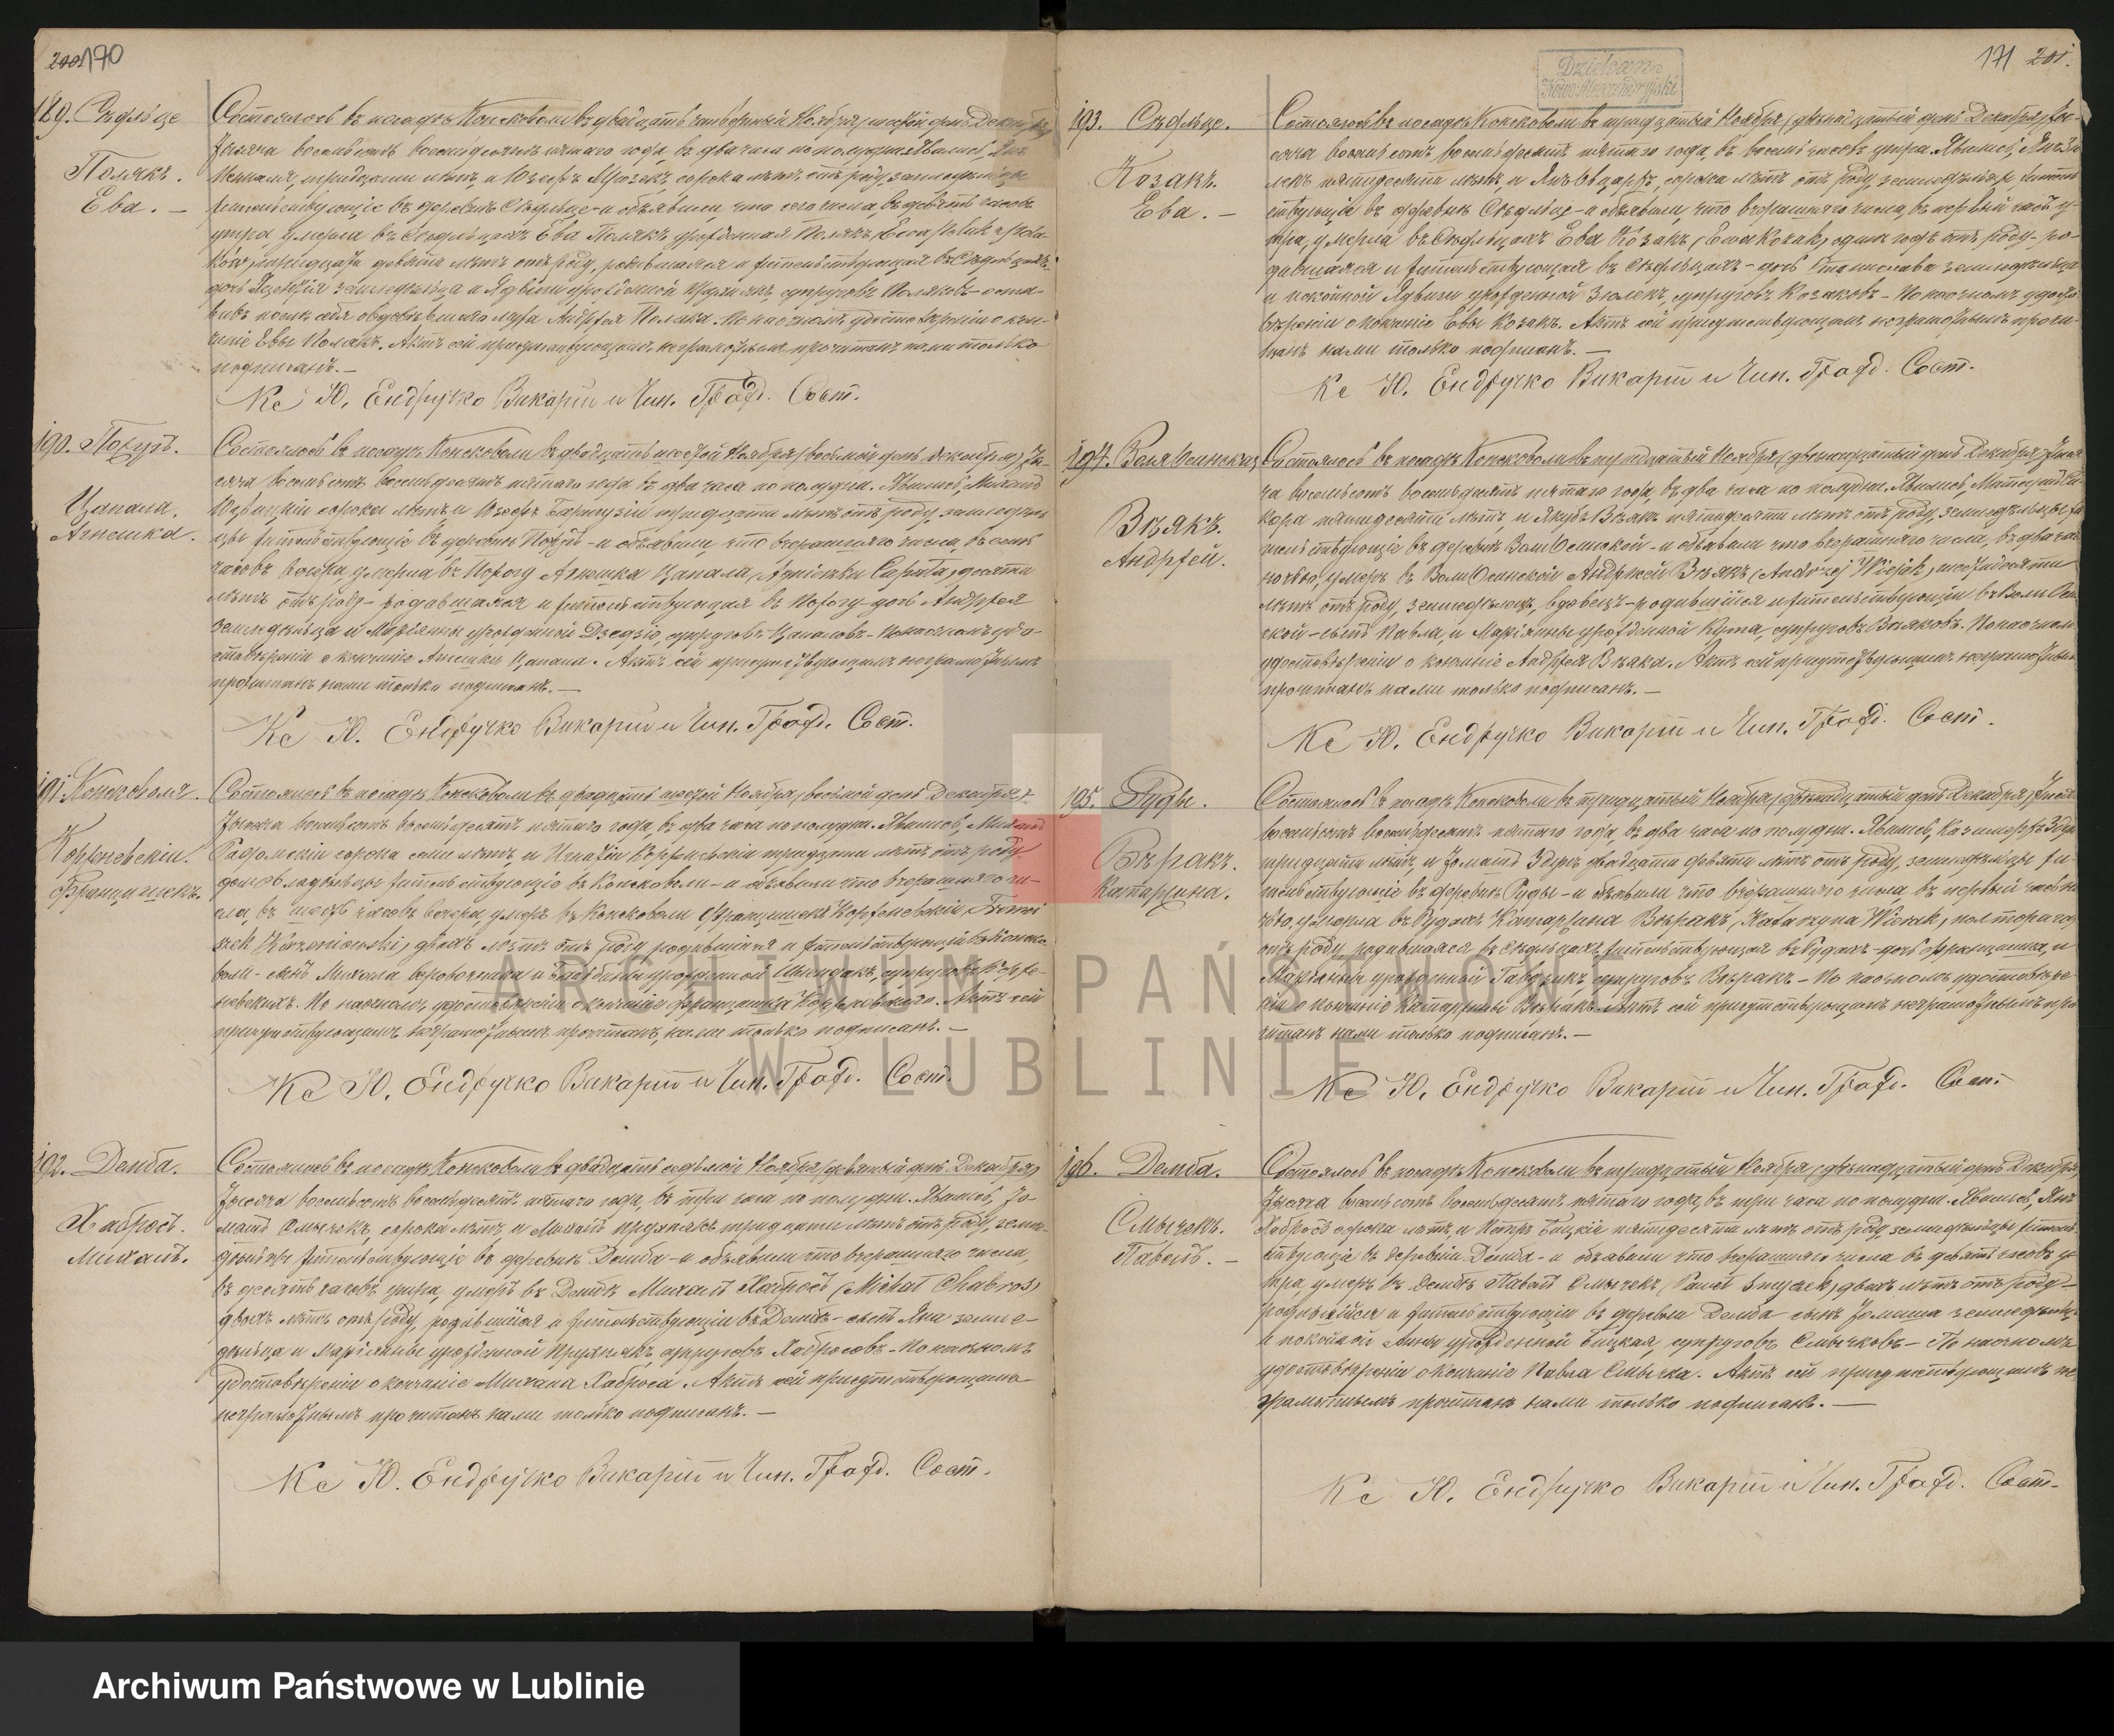 200 170
189. Сѣдльце
Полякъ.
Ева. —
Состоялось въ посадѣ Консковоли въ двадцать четвертый Ноября /шестой день Декабря/
тысяча восемьсотъ восемьдесятъ пятаго года, въ два часа по полудни. Явились, Янъ
тридцати лѣтъ, и Юзефъ Мрозекъ, сорока лѣтъ отъ роду, земледѣльцы
жительствующіе въ деревнѣ Сѣдльце — и объявили что сего числа, въ девять часовъ
утра, умерла въ Сѣдльцахъ Ева Полякъ урожденная
тридцати девяти лѣтъ отъ роду, родившаяся и жительствующая въ Сѣдльцахъ —
дочь земледѣльца и Ядвиги урожденной супруговъ — оста-
вивъ послѣ себя овдовѣвшаго мужа Андржея Поляка. По наочномъ удостовѣреніи о кон-
чинѣ Евы Полякъ. Актъ сей присутствующимъ неграмотнымъ прочитанъ нами только
подписанъ. —
Кс Ю. Ендрушко Викарій и Чин. Гражд. Сост.
190. Пожугъ.
Цапала.
Агнешка.
Состоялось въ посадѣ Консковоли въ двадцать шестой Ноября /восьмой день Декабря/ ты-
сяча восемьсотъ восемьдесятъ пятаго года въ два часа по полудни. Явились, Михалъ
сорока лѣтъ и Юзефъ тридцати лѣтъ отъ роду, земледѣль-
цы жительствующіе въ деревнѣ Пожугъ — и объявили что вчерашняго числа, въ семь
часовъ вечера, умерла въ Пожогу Агнешка Цапала /Agnieszka Capała/ десяти
лѣтъ отъ роду — родившаяся и жительствующая въ Пожогу — дочь Андржея
земледѣльца и Маріянны урожденной супруговъ Цапаловъ — По наочномъ удо-
стовѣреніи о кончинѣ Агнешки Цапала. Актъ сей присутствующимъ неграмотнымъ
прочитанъ нами только подписанъ. —
Кс Ю. Ендрушко Викарій и Чин. Гражд. Сост.
191. Консковоля.
Коржневскій.
Францишекъ.
Состоялось въ посадѣ Консковоли въ двадцать шестой Ноября /восьмой день Декабря/
тысяча восемьсотъ восемьдесятъ пятаго года, въ два часа по полудни. Явились, Михалъ
Радомскій сорока семи лѣтъ, и Игнатій Коржневскій тридцати лѣтъ отъ роду
домовладѣльцы жительствующіе въ Консковоли — и объявили что вчерашняго чи-
сла, въ шесть часовъ вечера, умеръ въ Консковоли Францишекъ Коржневскій /Franci
szek Korzeniowski/ двухъ лѣтъ отъ роду родившійся и жительствующій въ Конско-
воли — сынъ Михала и урожденной супруговъ Корже-
невскихъ. По наочномъ удостовѣреніи о кончинѣ Францишка Коржневскаго. Актъ сей
присутствующимъ неграмотнымъ прочитанъ, нами только подписанъ. —
Кс Ю. Ендрушко Викарій и Чин. Гражд. Сост.
192. Демба.
Хабросъ.
Михалъ.
Состоялось въ посадѣ Консковоли въ двадцать седьмой Ноября /девятый день Декабря/
тысяча восемьсотъ восемьдесятъ пятаго года, въ три часа по полудни. Явились, То-
машъ Смычекъ, сорока лѣтъ, и Михалъ тридцати лѣтъ отъ роду, земле-
дѣльцы жительствующіе въ деревнѣ Демба — и объявили что вчерашняго числа,
въ десять часовъ утра, умеръ въ Дембѣ Михалъ Хабросъ /Michał Chabros/
двухъ лѣтъ отъ роду, родившійся и жительствующій въ Дембѣ — сынъ Яна земле-
дѣльца и Маріянны урожденной супруговъ Хабросовъ — По наочномъ
удостовѣреніи о кончинѣ Михала Хаброса. Актъ сей присутствующимъ
неграмотнымъ прочитанъ нами только подписанъ. —
Кс Ю. Ендрушко Викарій и Чин. Гражд. Сост.
171 201.
Dziekan
Nowo Alexandryjski
193. Сѣдльце.
Козакъ.
Ева. —
Состоялось въ посадѣ Консковоли въ тридцатый Ноября /двѣнадцатый день Декабря/ ты-
сяча восемьсотъ восемьдесятъ пятаго года, въ восемь часовъ утра. Явились, Янъ
пятидесяти лѣтъ, и Янъ сорока лѣтъ отъ роду, земледѣльцы житель-
ствующіе въ деревнѣ Сѣдльце — и объявили что вчерашняго числа, въ первый часъ у-
тра, умерла въ Сѣдльцахъ Ева Козакъ /Ewa Kozak/ одинъ годъ отъ роду — ро-
дившаяся и жительствующая въ Сѣдльцахъ — дочь Станислава земледѣльца
и покойной Ядвиги урожденной Зюлекъ, супруговъ Козаковъ — По наочномъ удосто-
вѣреніи о кончинѣ Евы Козакъ. Актъ сей присутствующимъ неграмотнымъ прочи-
танъ нами только подписанъ. —
Кс Ю. Ендрушко Викарій и Чин. Гражд. Сост.
194. Воля Осинская
Взякъ.
Андржей.
Состоялось въ посадѣ Консковоли въ тридцатый Ноября /двѣнадцатый день Декабря/ тыся-
ча восемьсотъ восемьдесятъ пятаго года, въ два часа по полудни. Явились,
пятидесяти лѣтъ, и Якубъ Взякъ пятидесяти лѣтъ отъ роду, земледѣльцы жи-
тельствующіе въ деревнѣ Воли Осинской — и объявили что вчерашняго числа, въ два часа
ночью, умеръ въ Воли Осинской Андржей Взякъ /Andrzej Wziąk/ шестидесяти
лѣтъ отъ роду, земледѣлецъ, вдовецъ — родившійся и жительствующій въ Воли Осин-
ской — сынъ Павла и Маріянны урожденной супруговъ Взяковъ. По наочномъ
удостовѣреніи о кончинѣ Андржея Взяка. Актъ сей присутствующимъ неграмотнымъ
прочитанъ нами только подписанъ. —
Кс Ю. Ендрушко Викарій и Чин. Гражд. Сост.
195. Руды.
Катаржина.
Состоялось въ посадѣ Консковоли въ тридцатый Ноября /двѣнадцатый день Декабря/ тысяча
восемьсотъ восемьдесятъ пятаго года, въ два часа по полудни. Явились, Казимержъ
тридцати лѣтъ, и Томашъ двадцати девяти лѣтъ отъ роду, земледѣльцы жи-
тельствующіе въ деревнѣ Руды — и объявили что вчерашняго числа, въ первый часъ но-
чью, умерла въ Рудахъ Катаржина /Katarzyna
отъ роду, родившаяся въ Сѣдльцахъ, жительствующая въ Рудахъ — дочь Францишка, и
Маріянны урожденной супруговъ — По наочномъ удостовѣре-
ніи о кончинѣ Катаржины Актъ сей присутствующимъ неграмотнымъ про-
читанъ нами только подписанъ. —
Кс Ю. Ендрушко Викарій и Чин. Гражд. Сост.
196. Демба.
Смычекъ.
Павелъ. —
Состоялось въ посадѣ Консковоли въ тридцатый Ноября /двѣнадцатый день Декабря/
тысяча восемьсотъ восемьдесятъ пятаго года, въ три часа по полудни. Явились, Янъ
Хабросъ сорока лѣтъ, и Петръ пятидесяти лѣтъ отъ роду, земледѣльцы житель-
ствующіе въ деревни Демба — и объявили что вчерашняго числа въ девять часовъ у-
тра, умеръ въ Дембѣ Павелъ Смычекъ /Paweł Smyczek/ двухъ лѣтъ отъ роду —
родившійся и жительствующій въ деревни Демба сынъ Томаша земледѣльца
и покойной Анны урожденной супруговъ Смычковъ — По наочномъ
удостовѣреніи о кончинѣ Павла Смычка. Актъ сей присутствующимъ не-
грамотнымъ прочитанъ нами только подписанъ. —
Кс Ю. Ендрушко Викарій и Чин. Гражд. Сост.
ARCHIWUM PAŃSTWOWE
W LUBLINIE
Archiwum Państwowe w Lublinie